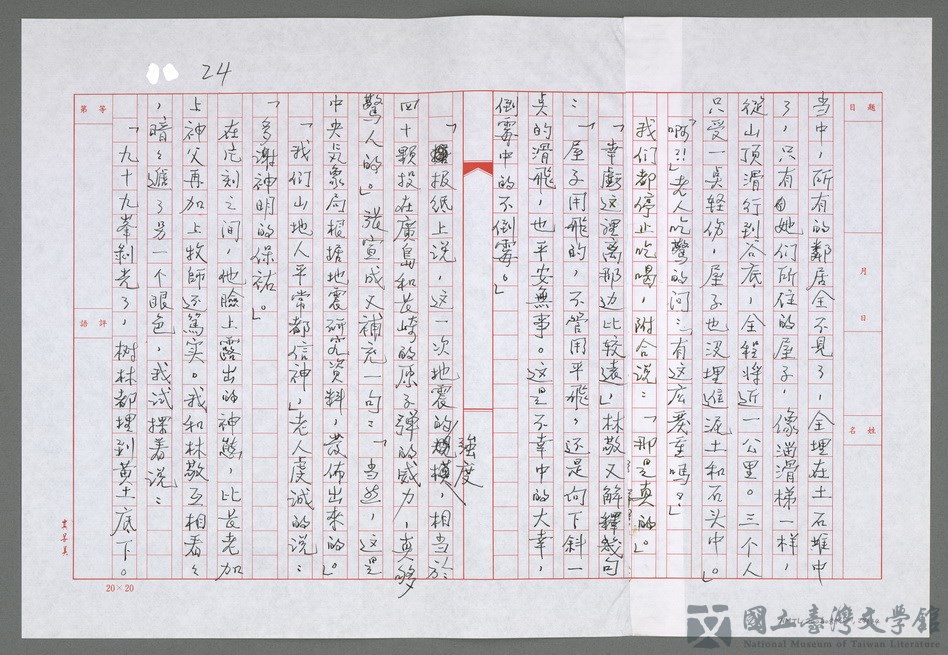 24
題目
月
日
姓名
當中，所有的鄰居全不見了，全埋在土石堆中
了，只有她们所住的屋子，像溜滑梯一样，
從山頂滑行到谷底，全程将近一公里。三个人
只受一点轻伤，屋子也没埋進泥土和石头中。」
「啊?!」老人吃驚的问：「有这庅严重吗？」
我们都停止吃喝，附合说：「那是真的。」
「幸虧这裡离那边比较遠，」林敬又解釋幾句
：「屋子用飛的，不管用平飛，还是向下斜一
点的滑飛，也平安無事。这是不幸中的大幸，
倒霉中的不倒霉。」
「报纸上说，这一次地震的強度，相当於
四十顆投在廣島和長崎的原子弹的威力，真够
驚人的。」張宣成又補充一句：「当然，这是
中央气象局根據地震研究資料，發佈出來的。」
「我们山地人平常都信神，」老人虔诚的说：
「多谢神明的保祐。」
在片刻之间，他臉上露出的神態，比長老加
上神父再加上牧師还篤实。我和林敬互相看々
，暗々遞了另一个眼色，我试探着说：
「九十九峯剝光了，树林都埋到黄土底下。
等第
評語
20×20
國立臺灣文學館
National Museum of Taiwan Literature